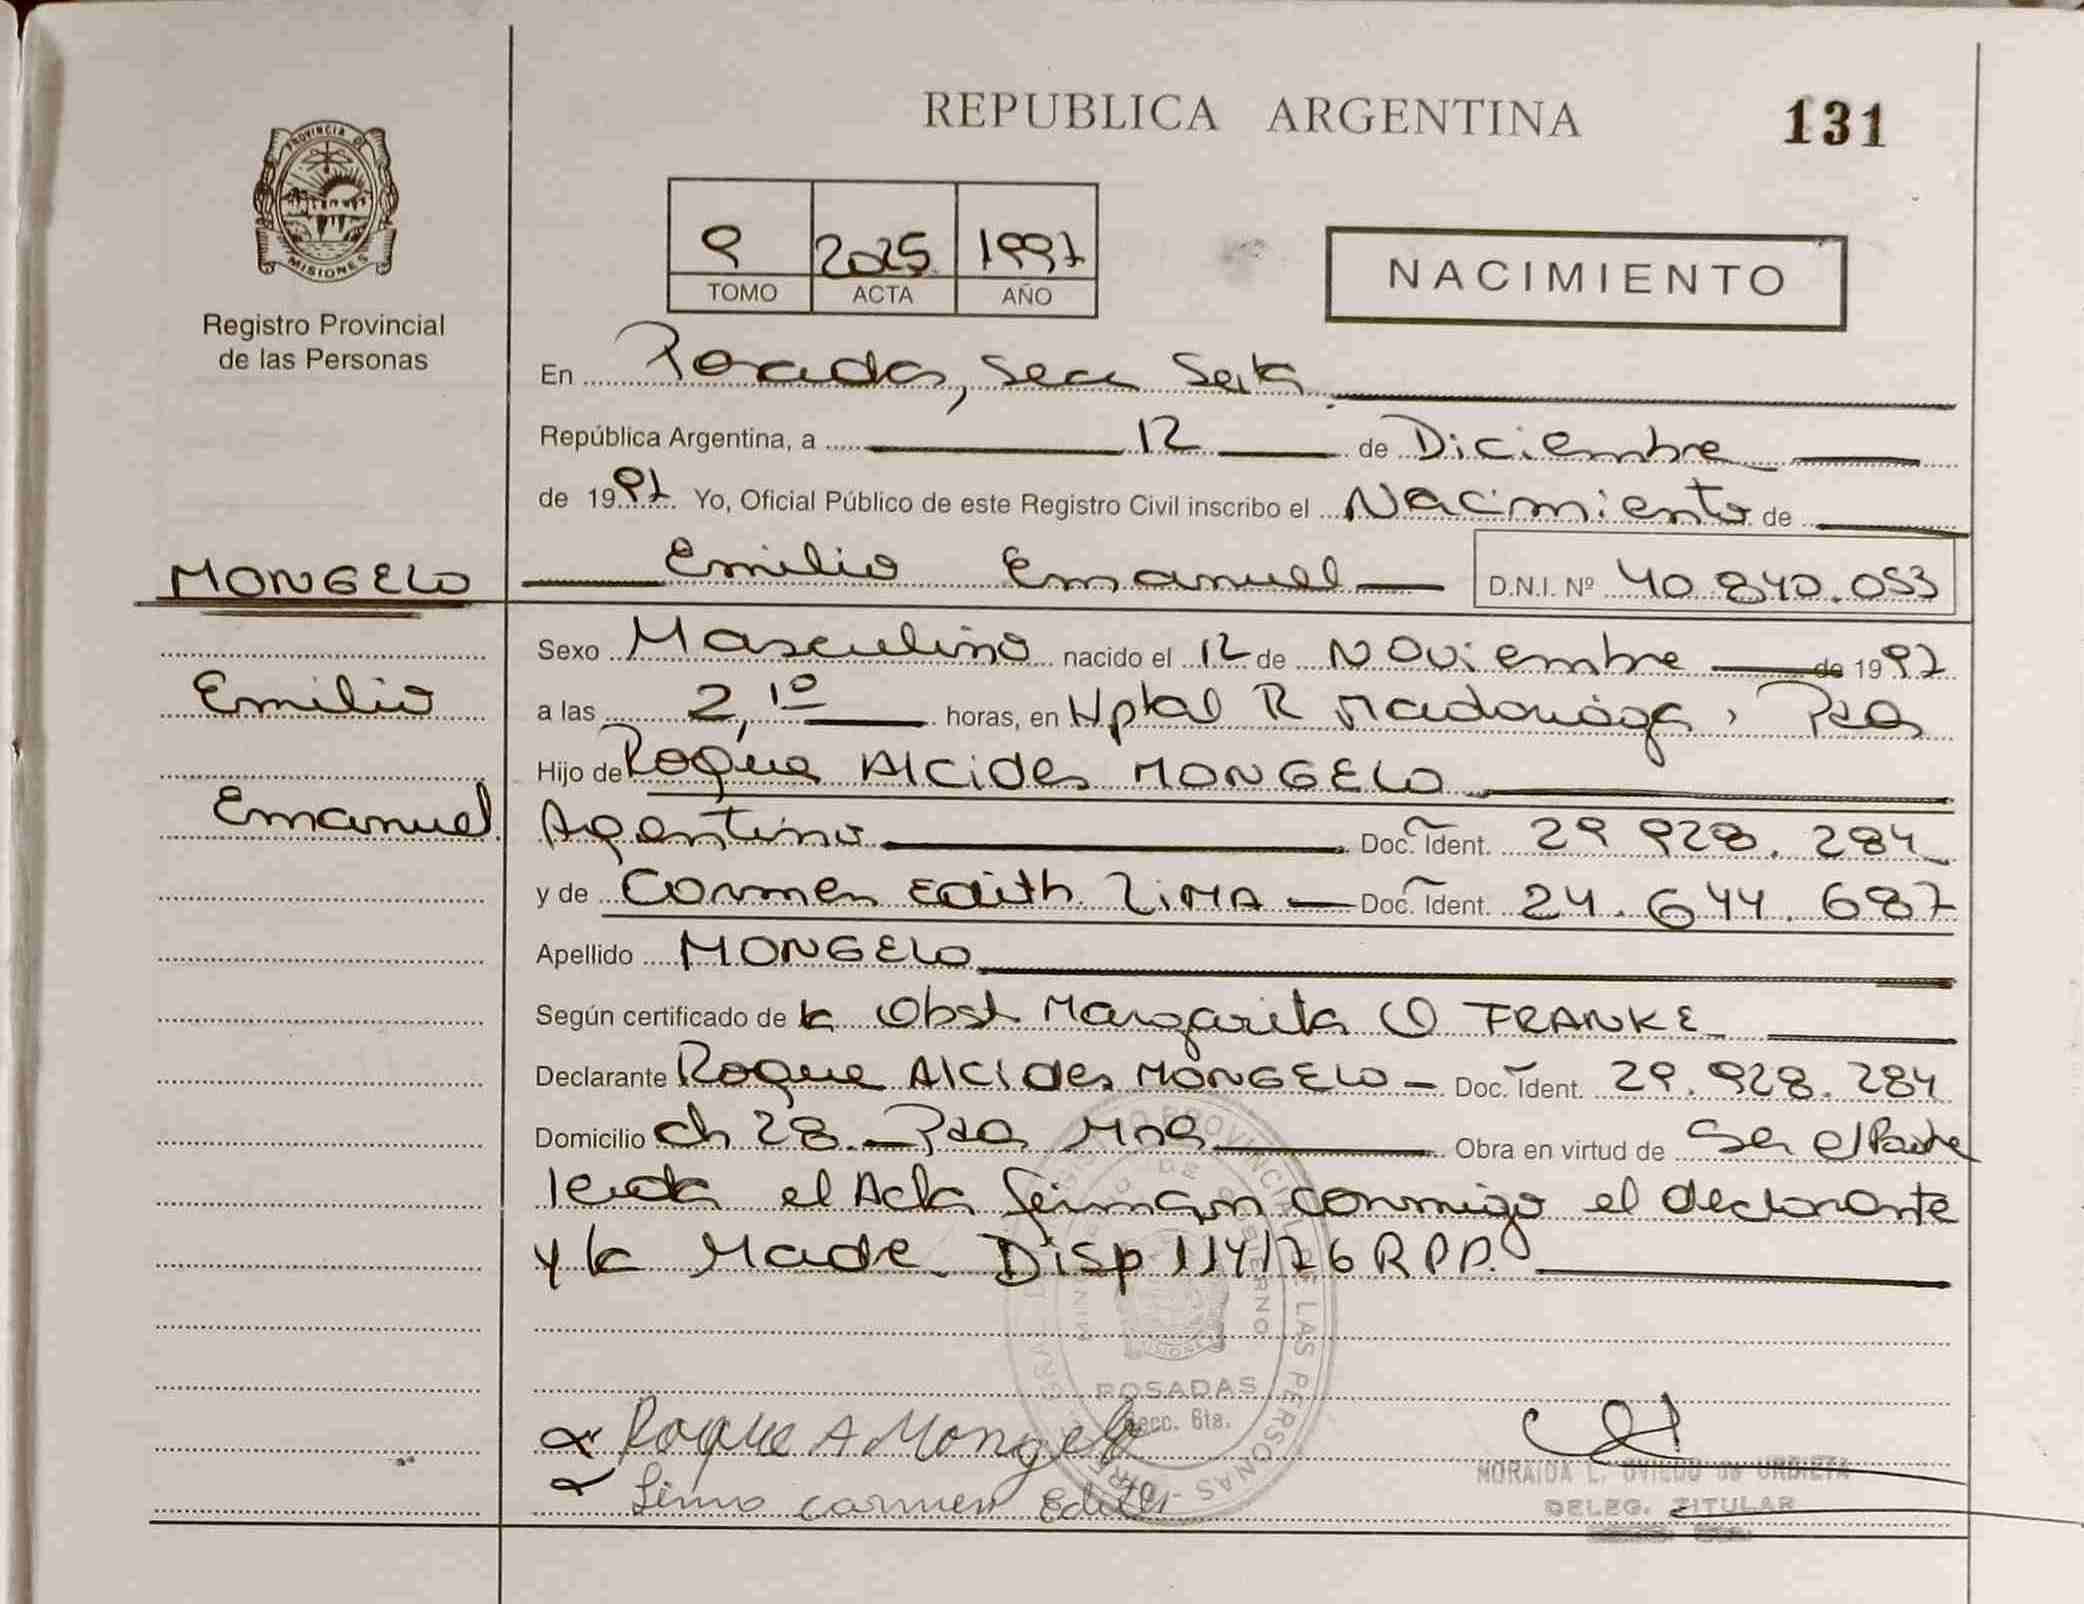 REPUBLICA ARGENTINA
131
PROVINCIA DE
MISIONES
Registro Provincial
de las Personas
9 2025 1997
TOMO ACTA AÑO
NACIMIENTO
En Posadas, Secc Sexta
República Argentina, a 12 de Diciembre
de 1997 Yo, Oficial Público de este Registro Civil inscribo el Nacimiento de
MONGELO
Emilio Emanuel D.N.I. Nº 40.840.053
Sexo Masculino nacido el 12 de Noviembre de 1997
Emilio
a las 2,10 horas, en Hptal R Madariaga, Pdas
Hijo de Roque Alcides MONGELO
Emanuel
Argentino Doc. Ident. 29 928.284
y de Carmen Edith LIMA Doc. Ident. 24.644.687
Apellido MONGELO
Según certificado de la Obst Margarita O FRANKE
Declarante Roque Alcides MONGELO Doc. Ident. 29.928.284
Domicilio Ch 28. Pdas Mnes Obra en virtud de Ser el Padre
leida el Acta firman conmigo el declarante
y la Madre. Disp 114/76 R.P.P.
POSADAS
Secc. 6ta.
Roque A Mongelo
Lima Carmen Edith
MORAIDA L. OVIEDO de URBIETA
DELEG. TITULAR